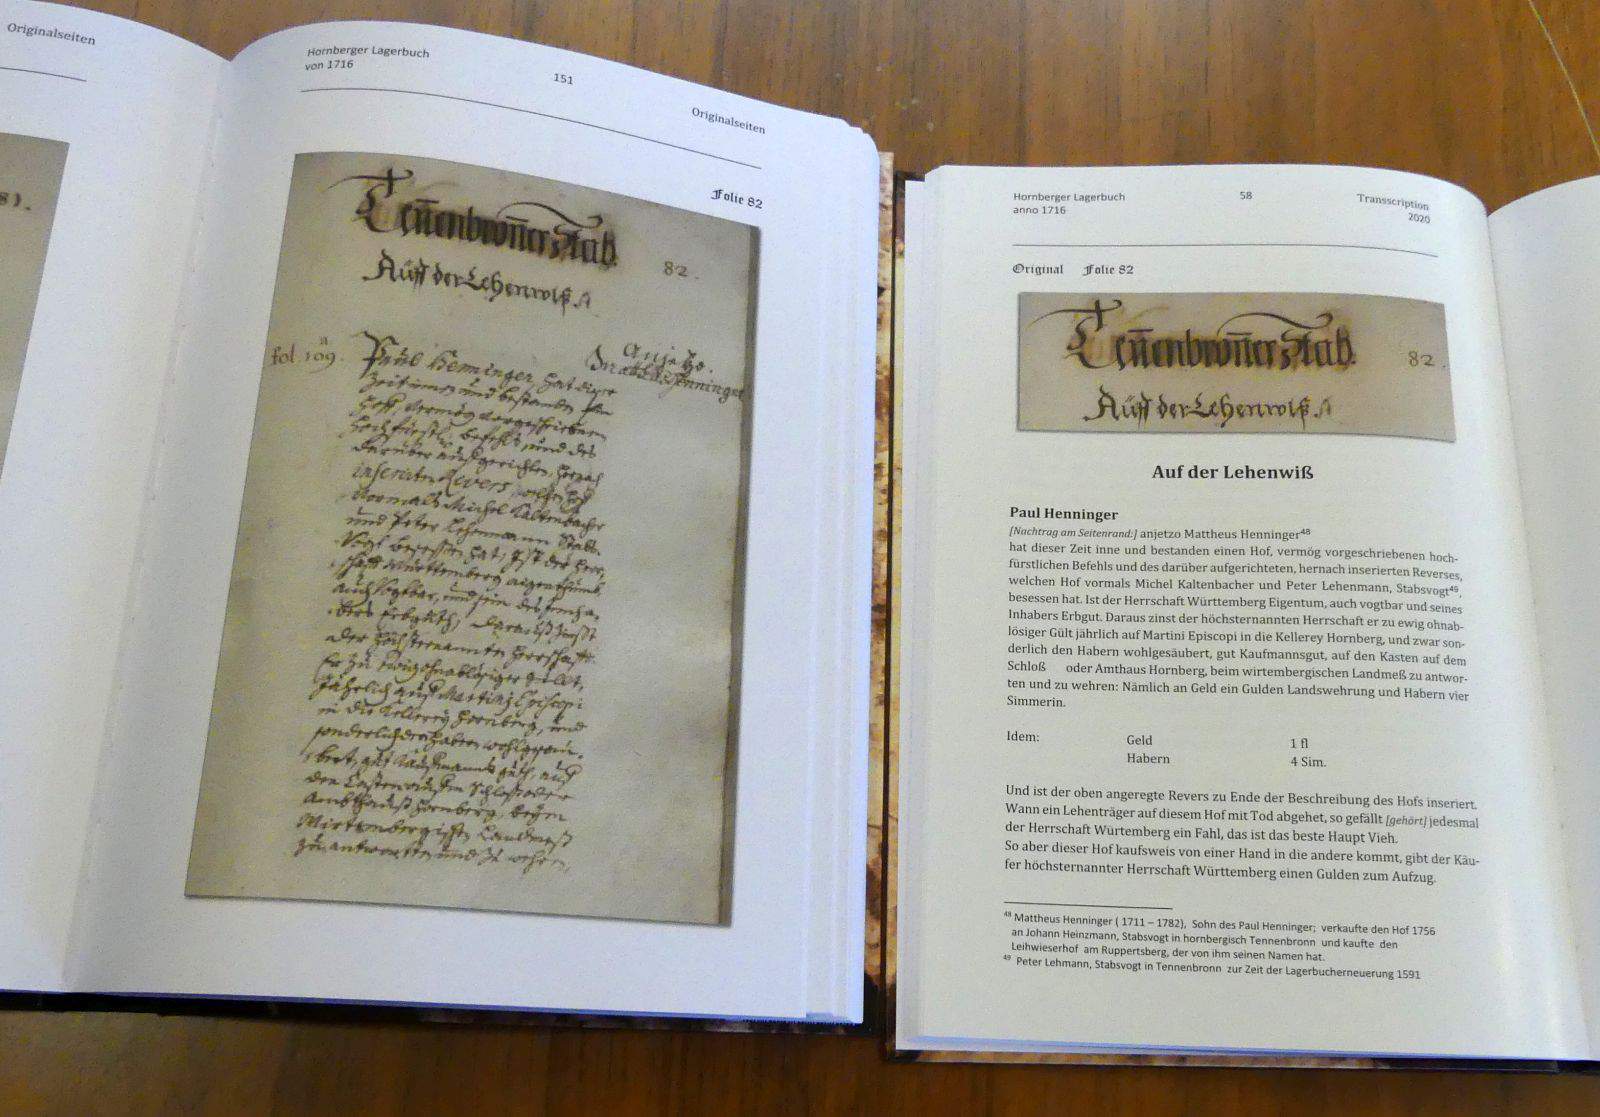 Originalseiten
8).
Hornberger Lagerbuch
von 1716
151
Originalseiten
Folie 82
Teñenbroñer Stab.
82.
Auff der Lehenwiß
fol. 109.
Anjetzo.
Paul Henninger, hat dieser
Zeit innen und bestanden
Hoff, vermög vorgeschriebenen
hochfürstl. befehls, und des
darüber auffgerichten, hernach
inserirten Revers, welchen hoff
vormals Michel Kaltenbacher
und Peter Lehenmann Stabs-
Vogt besessen hat, Ist der Herr-
schafft Württemberg aigenthumb,
auch Vogtbar, und sein des Innha-
bers Erbguth, darauß zinßt
der höchsternannten Herrschafft
Er zu ewig ohnablösiger güllt,
Jährlich auff Martinj Episcopi
in die Kellerey Hornberg, und
sonderlich den habern wohlgesäu-
bert, gut Kauffmanns guth, auff
den Casten auff dem Schloß oder
Ambthauß Hornberg, beym
Wirtembergischen Landmeß
zu antworten und zu wehren,
Hornberger Lagerbuch
anno 1716
58
Transscription
2020
Original Folie 82
Teñenbroñer Stab.
82.
Auff der Lehenwiß
Auf der Lehenwiß
Paul Henninger
[Nachtrag am Seitenrand:] anjetzo Mattheus Henninger⁴⁸
hat dieser Zeit inne und bestanden einen Hof, vermög vorgeschriebenen hoch-
fürstlichen Befehls und des darüber aufgerichteten, hernach inserierten Reverses,
welchen Hof vormals Michel Kaltenbacher und Peter Lehenmann, Stabsvogt⁴⁹,
besessen hat. Ist der Herrschaft Württemberg Eigentum, auch vogtbar und seines
Inhabers Erbgut. Daraus zinst der höchsternannten Herrschaft er zu ewig ohnab-
lösiger Gült jährlich auf Martini Episcopi in die Kellerey Hornberg, und zwar son-
derlich den Habern wohlgesäubert, gut Kaufmannsgut, auf den Kasten auf dem
Schloß oder Amthaus Hornberg, beim wirtembergischen Landmeß zu antwor-
ten und zu wehren: Nämlich an Geld ein Gulden Landswehrung und Habern vier
Simmerin.
Idem: Geld 1 fl
Habern 4 Sim.
Und ist der oben angeregte Revers zu Ende der Beschreibung des Hofs inseriert.
Wann ein Lehenträger auf diesem Hof mit Tod abgehet, so gefällt [gehört] jedesmal
der Herrschaft Würtemberg ein Fahl, das ist das beste Haupt Vieh.
So aber dieser Hof kaufsweis von einer Hand in die andere kommt, gibt der Käu-
fer höchsternannter Herrschaft Württemberg einen Gulden zum Aufzug.
⁴⁸ Mattheus Henninger ( 1711 – 1782), Sohn des Paul Henninger; verkaufte den Hof 1756
an Johann Heinzmann, Stabsvogt in hornbergisch Tennenbronn und kaufte den
Leihwieserhof am Ruppertsberg, der von ihm seinen Namen hat.
⁴⁹ Peter Lehmann, Stabsvogt in Tennenbronn zur Zeit der Lagerbucherneuerung 1591